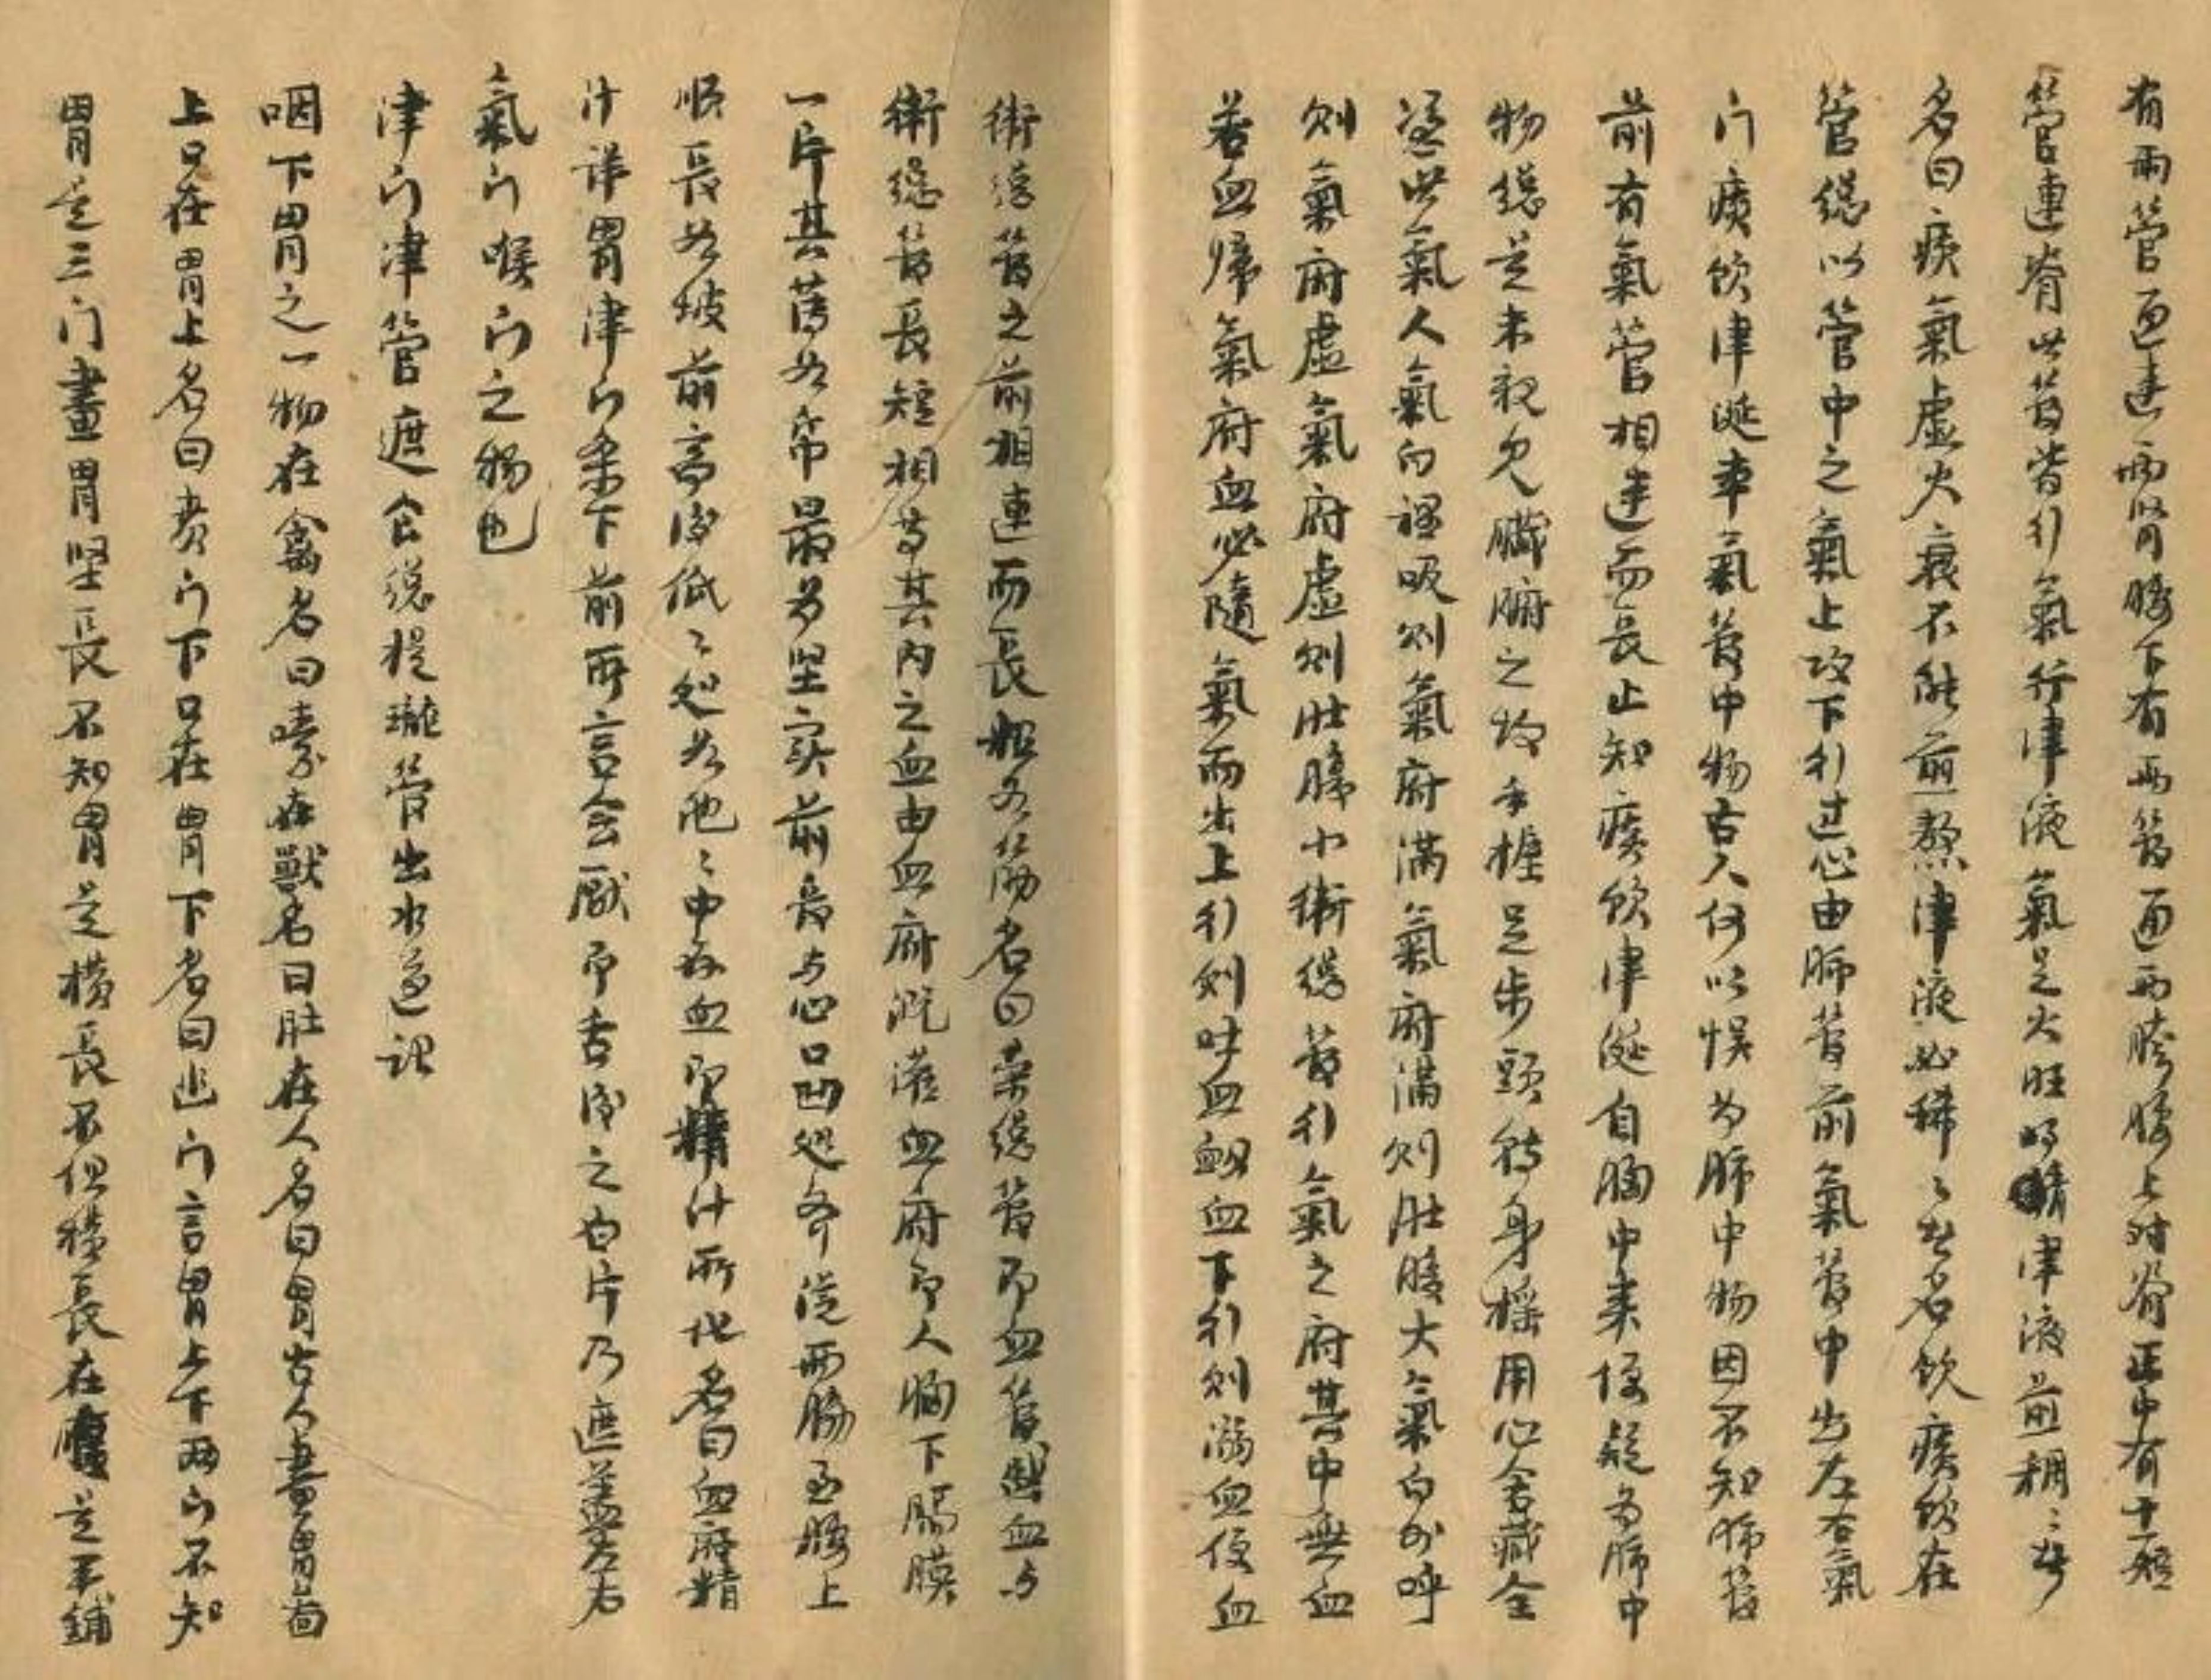 有兩管通連兩腎腰下有兩管通兩胯腰上對脊正中有十一短
管連脊此管皆行氣行津液氣足火旺將津液煎稠〻者
名曰痰氣虛火衰不能煎熬津液必稀〻者名飲痰飲在
管總以管中之氣上攻下行过心由肺管前氣管中出左右氣
门痰飲津涎本氣管中物古人何以悞为肺中物因不知肺管
前有氣管相連而長止知痰飲津涎自胸中来便疑为肺中
物總是未親見臟腑之故手握足步頭轉身搖用心舍藏全
凴此氣人氣向裡吸则氣府满氣府滿则肚腹大氣向外呼
则氣府虛氣府虛则肚腹小衛總管行氣之府其中無血
若血歸氣府血必隨氣而出上行则吐血衂血下行则溺血便血
衛總管之前相連而長粗如筋名曰荣總管即血管盛血与
衛總管長短相等其内之血由血府溉灌血府即人胸下膈膜
一片其薄如帋最为坚实前長与心口凹処齐從兩脇至腰上
順長如坡前高後低〻処如池〻中存血即精汁所化名曰血府精
汁詳胃津门条下前所言会厭即舌後之白片乃遮蓋左右
氣门喉门之物也
津门津管遮食總提瓏管出水道记
咽下胃之一物在禽名曰嗉在獸名曰肚在人名曰胃古人畫胃啚
上口在胃上名曰賁门下口在胃下名曰幽门言胃上下两门不知
胃是三门畫胃竪長不知胃是横長不但横長在腹是平鋪